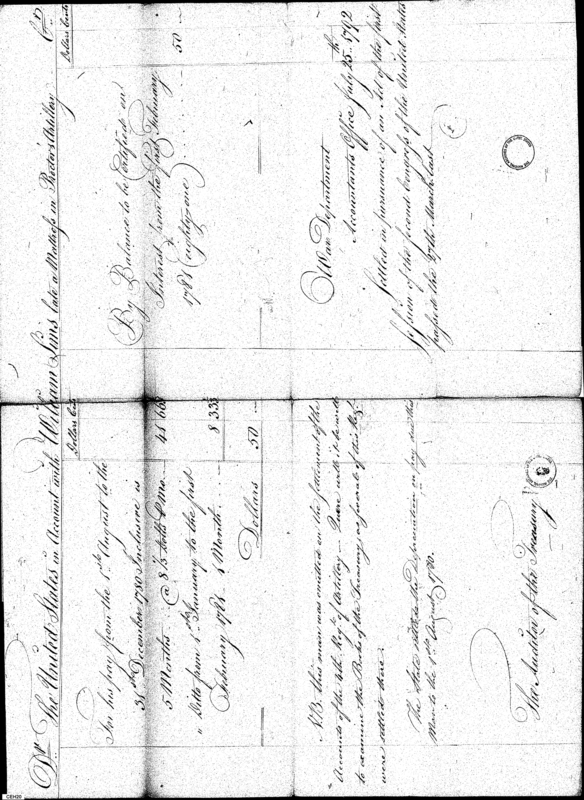 Dr. The United States in Account with William Sims late a Mattross in Proctor's Artillery Cr.
Dollars Cents
For his pay from the 1st August to the
31st December 1780 Inclusive is
5 Months @ 8⅓ dolls p mo. 41 66⅔
" Ditto from 1st January to the first
February 1781. 1 Month 8 33⅓
Dollars 50 —
N.B. this man was omitted in the settlement of the
Accounts of the 4th Regt of Artillery
to examine the Books of the Treasury, as some of this Regt
were settled there.
The State settled the depreciation in pay with this
Man to the 1st August 1780.
The Auditor of the Treasury
Dollars Cents
By Balance to be certified on
Interest from the first February
1781 (eighty one) 50 —
War Department
Accountants Office July 25th 1792
Settled in pursuance of an Act of the first
Session of the second Congress of the United States
passed the 27th March last
CEH20